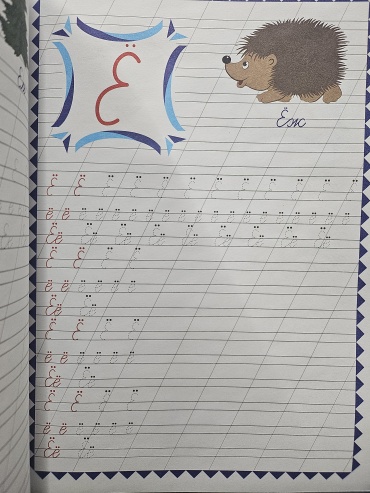 Ё
Ёж
Ё Ё Ё Ё Ё Ё Ё Ё Ё Ё Ё Ё
ё ё ё ё ё ё ё ё ё ё ё ё ё ё ё ё ё ё ё
Ёё Ёё Ёё Ёё Ёё Ёё Ёё Ёё Ёё
Ё Ё Ё Ё
ё ё ё ё ё ё
Ёё Ёё
Ё Ё Ё Ё
ё ё ё ё ё ё
Ёё Ёё
Ё Ё Ё Ё
ё ё ё ё ё ё
Ёё Ёё